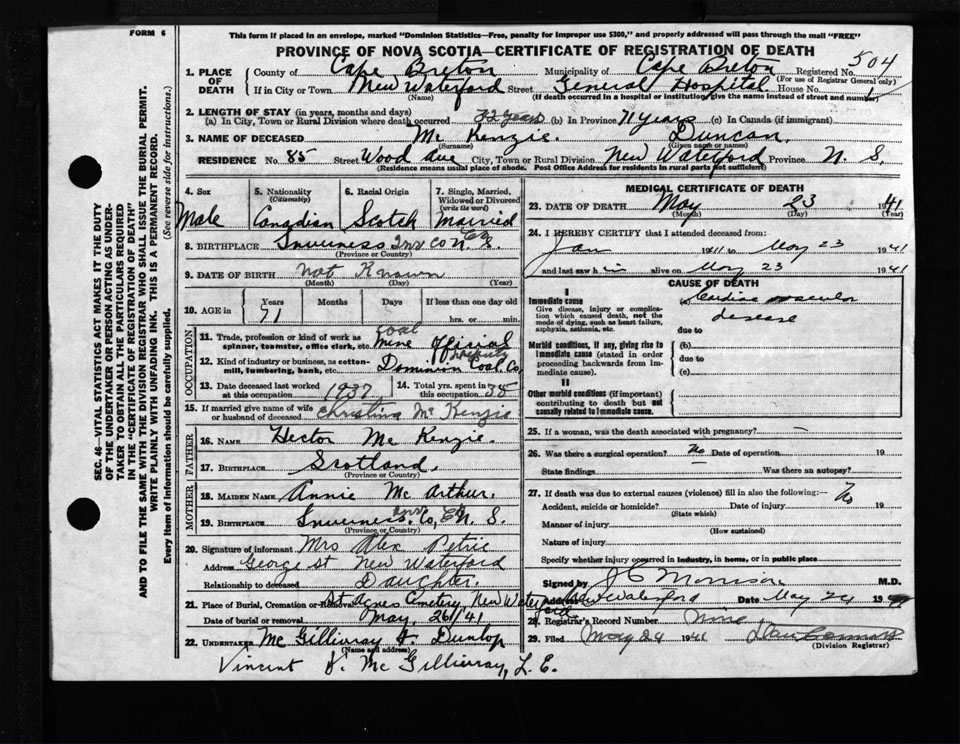 FORM 6
This form if placed in an envelope, marked "Dominion Statistics—Free, penalty for improper use $300," and properly addressed will pass through the mail "FREE"
PROVINCE OF NOVA SCOTIA—CERTIFICATE OF REGISTRATION OF DEATH
1. PLACE OF DEATH County of Cape Breton Municipality of Cape Breton Registered No. 504
(For use of Registrar General only)
If in City or Town New Waterford Street General Hospital House No.
(Name) (If death occurred in a hospital or institution give the name instead of street and number)
2. LENGTH OF STAY (in years, months and days)
(a) In City, Town or Rural Division where death occurred 32 years (b) In Province 71 years (c) In Canada (if immigrant)
3. NAME OF DECEASED Mc Kenzie. Duncan.
(Surname) (Given name or names)
RESIDENCE No. 85 Street Wood ave City, Town or Rural Division New Waterford Province N. S.
(Residence means usual place of abode. Post Office Address for residents in rural parts not sufficient)
4. Sex 5. Nationality (Citizenship) 6. Racial Origin 7. Single, Married, Widowed or Divorced (write the word)
Male Canadian Scotch Married
8. BIRTHPLACE Inverness Inv Co N. S.
(Province or Country)
9. DATE OF BIRTH not Known
(Month) (Day) (Year)
10. AGE in Years Months Days If less than one day
71 hrs. or min.
OCCUPATION
11. Trade, profession or kind of work as spinner, teamster, office clerk, etc. Coal mine official
12. Kind of industry or business, as cotton-mill, lumbering, bank, etc. Dominion Coal Co
13. Date deceased last worked at this occupation 1937 14. Total yrs. spent in this occupation 35
15. If married give name of wife or husband of deceased Christina Mc Kenzie
FATHER
16. NAME Hector Mc Kenzie.
17. BIRTHPLACE Scotland.
MOTHER
18. MAIDEN NAME Annie Mc Arthur.
19. BIRTHPLACE Inverness. Inv Co, N. S.
(Province or Country)
20. Signature of informant Mrs Alex Petrie
Address George St New Waterford
Relationship to deceased Daughter.
21. Place of Burial, Cremation or Removal St Agnes Cemetery, New Waterford
Date of burial or removal May, 26/41
22. UNDERTAKER Mc Gillivray & Dunlop
(Name and address)
Vincent J. Mc Gillivray, L. E.
MEDICAL CERTIFICATE OF DEATH
23. DATE OF DEATH May 23 1941
(Month) (Day) (Year)
24. I HEREBY CERTIFY that I attended deceased from:
Jan 1941 to May 23 1941
and last saw him alive on May 23 1941
CAUSE OF DEATH
I
Immediate cause
Give disease, injury or complication which caused death, not the mode of dying, such as heart failure, asphyxia, asthenia, etc.
Cardiac vascular
disease
due to
Morbid conditions, if any, giving rise to immediate cause (stated in order proceeding backwards from immediate cause).
(b)
due to
(c)
II
Other morbid conditions (if important) contributing to death but not causally related to immediate cause.
25. If a woman, was the death associated with pregnancy? —
26. Was there a surgical operation? No Date of operation 19
State findings — Was there an autopsy?
27. If death was due to external causes (violence) fill in also the following:— No
Accident, suicide or homicide? Date of injury 19
(State which)
Manner of injury
(How sustained)
Nature of injury
Specify whether injury occurred in industry, in home, or in public place
Signed by J C Morrison M.D.
Address New Waterford Date May 24 19
28. Registrar's Record Number Nine
29. Filed May 24 1941
(Division Registrar)
SEC. 46—VITAL STATISTICS ACT MAKES IT THE DUTY OF THE UNDERTAKER OR PERSON ACTING AS UNDERTAKER TO OBTAIN ALL THE PARTICULARS REQUIRED IN THE "CERTIFICATE OF REGISTRATION OF DEATH" AND TO FILE THE SAME WITH THE DIVISION REGISTRAR WHO SHALL ISSUE THE BURIAL PERMIT.
WRITE PLAINLY WITH UNFADING INK. THIS IS A PERMANENT RECORD.
Every item of information should be carefully supplied. (See reverse side for instructions.)